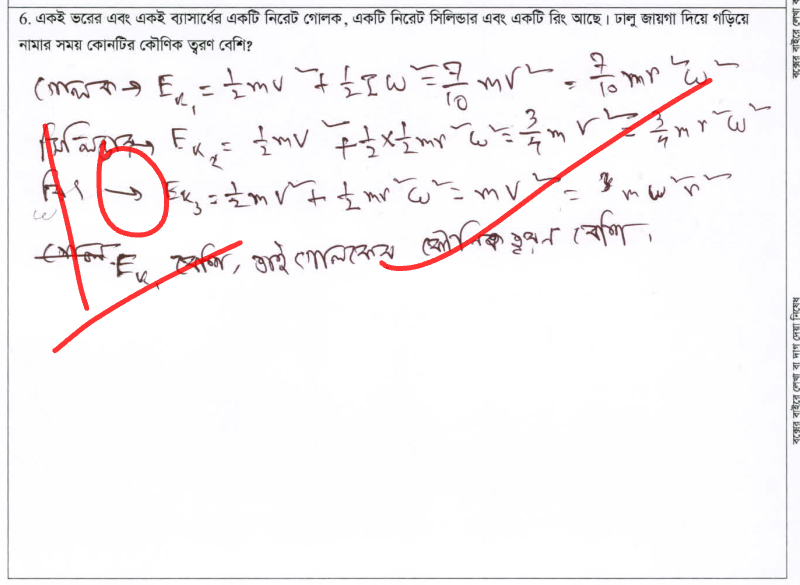 6. একই ভরের এবং একই ব্যাসার্ধের একটি নিরেট গোলক, একটি নিরেট সিলিন্ডার এবং একটি রিং আছে। ঢালু জায়গা দিয়ে গড়িয়ে
নামার সময় কোনটির কৌণিক ত্বরণ বেশি?
গোলক → E_{K_1} = \frac{1}{2}mv^2 + \frac{1}{2}Iω^2 = \frac{7}{10}mv^2 = \frac{7}{10}mr^2ω^2
সিলিন্ডার → E_{K_2} = \frac{1}{2}mv^2 + \frac{1}{2}×\frac{1}{2}mr^2ω^2 = \frac{3}{4}mv^2 = \frac{3}{4}mr^2ω^2
রিং → E_{K_3} = \frac{1}{2}mv^2 + \frac{1}{2}mr^2ω^2 = mv^2 = mω^2r^2
E_{K_1} বেশি, তাই গোলকের কৌনিক ত্বরন বেশি।
10
বক্সের বাইরে লেখা বা
বক্সের বাইরে লেখা বা দাগ দেয়া নিষেধ